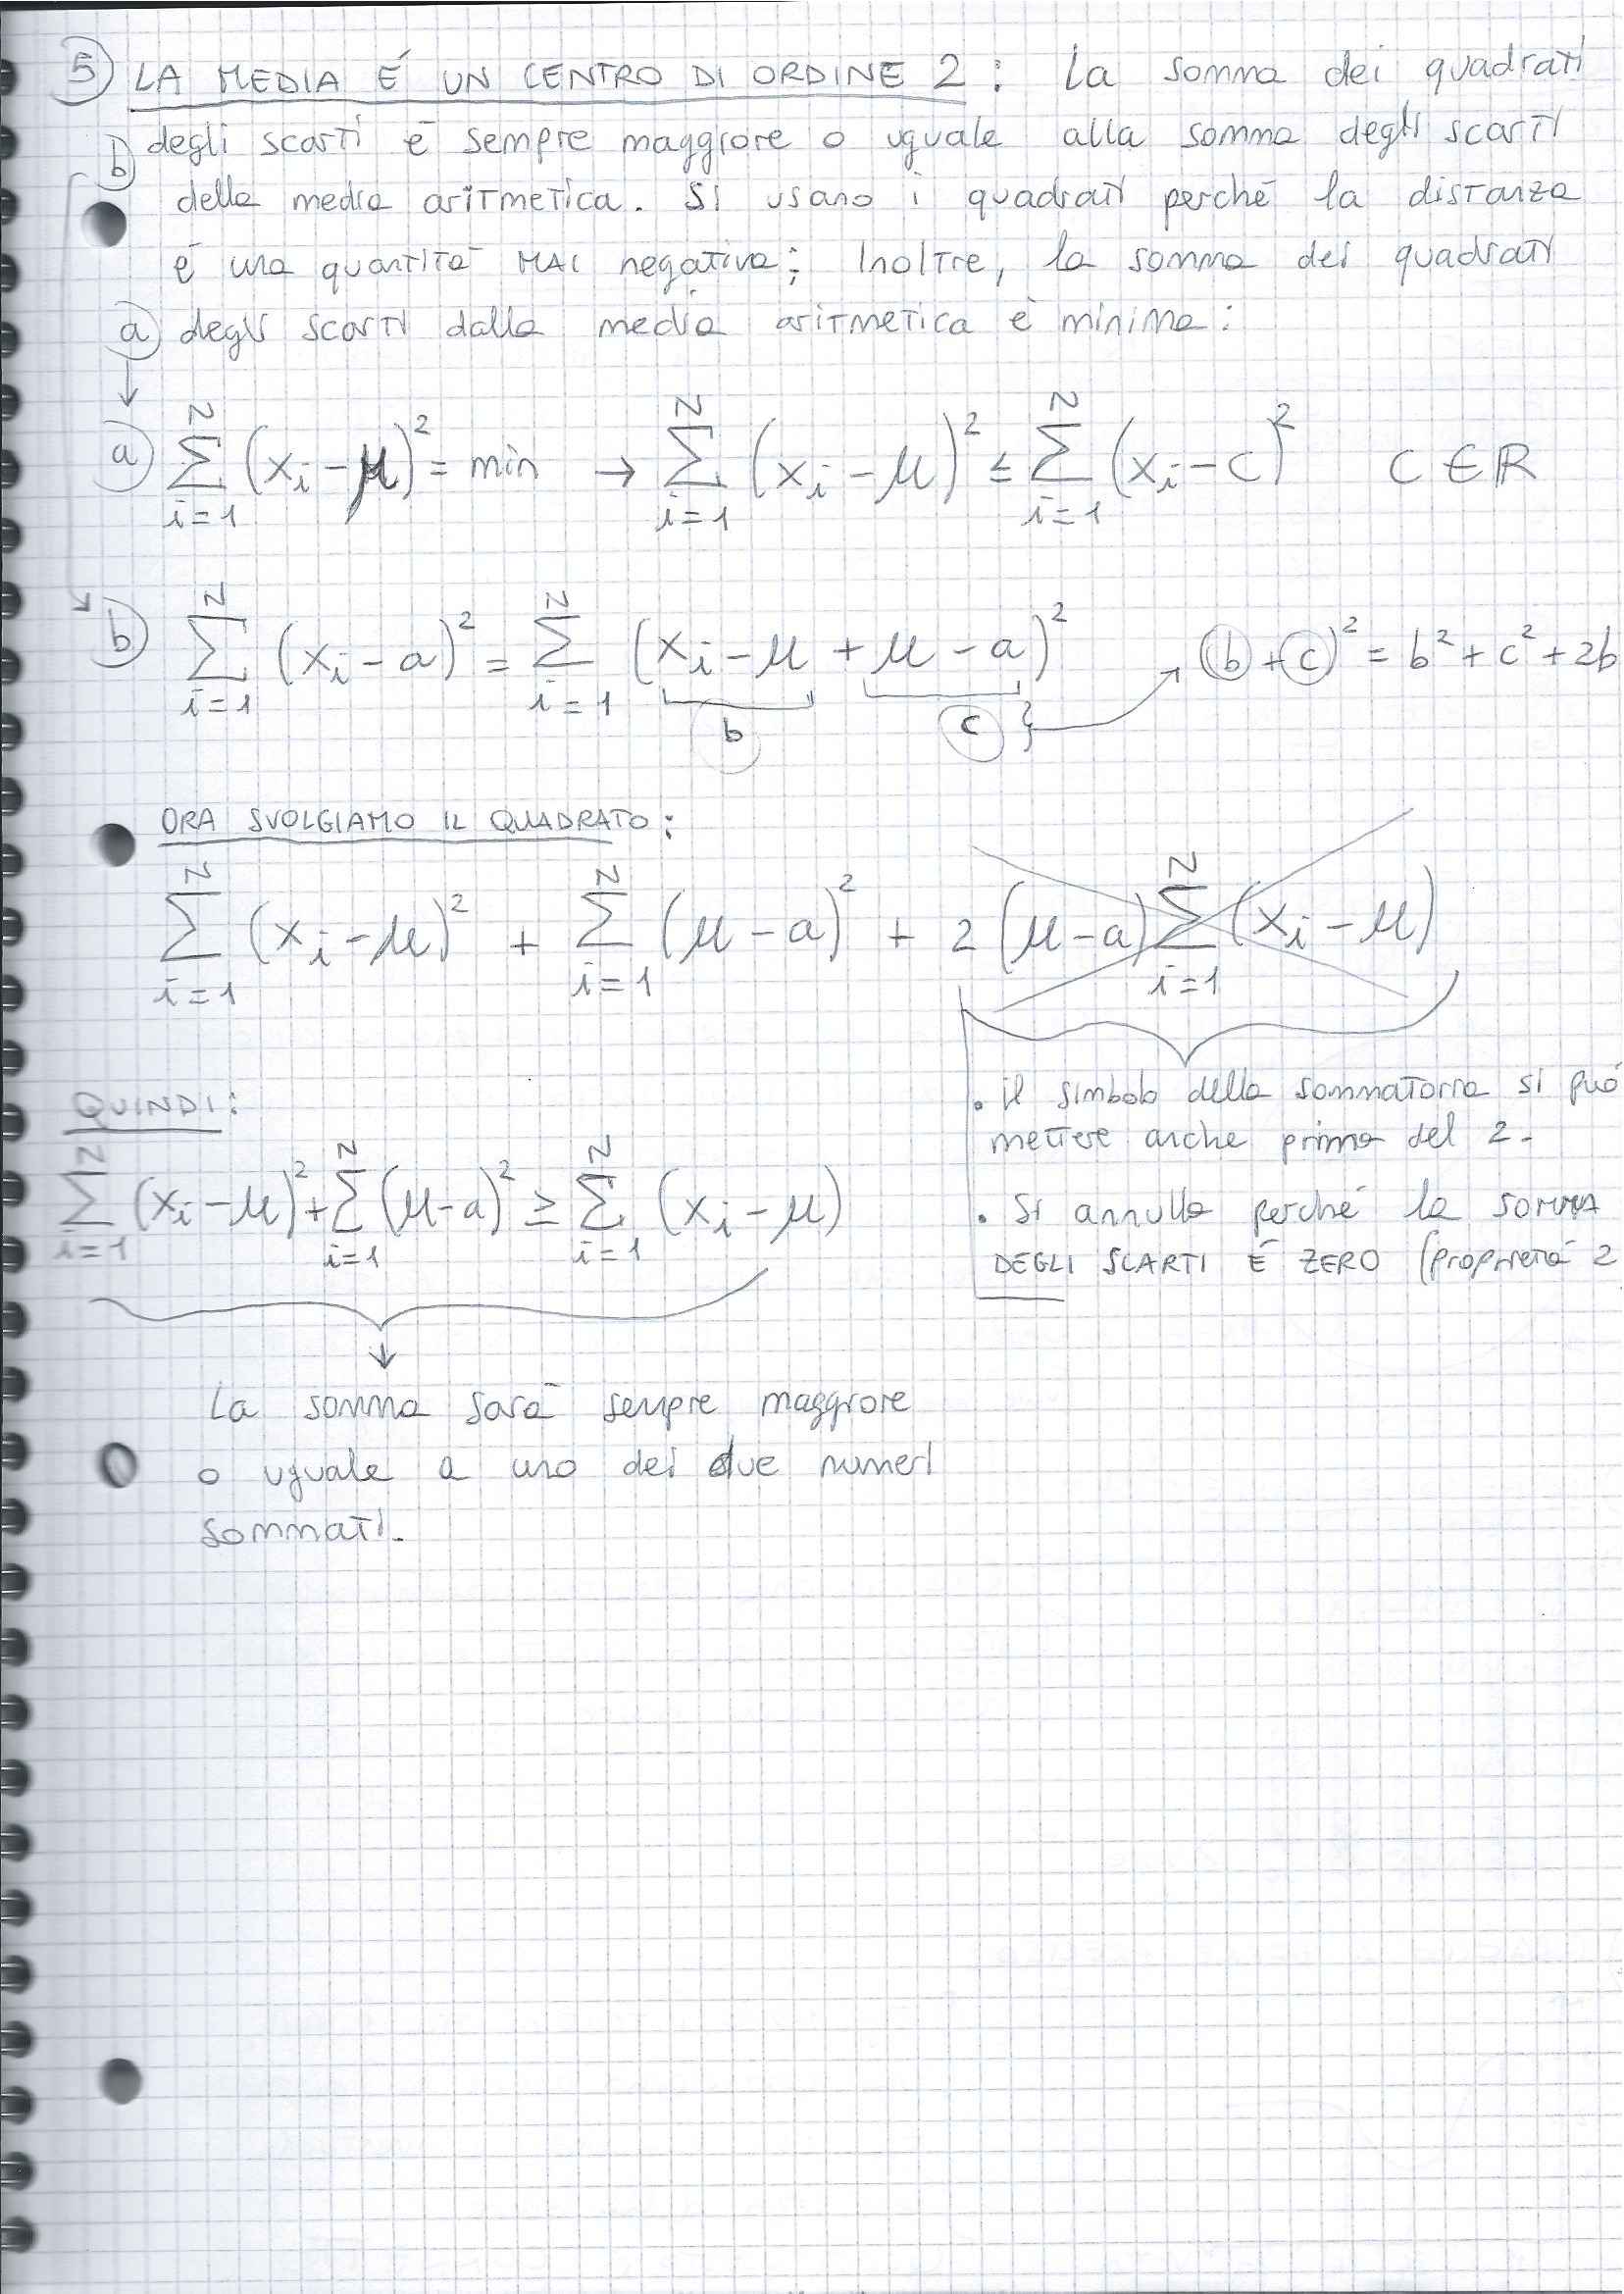 5) LA MEDIA É UN CENTRO DI ORDINE 2: La somma dei quadrati
b) degli scarti è sempre maggiore o uguale alla somma degli scarti
della media aritmetica. Si usano i quadrati perché la distanza
é una quantità MAI negativa; Inoltre, la somma dei quadrati
a) degli scarti dalla media aritmetica è minima:
a) ∑_{i=1}^{N} (x_i - μ)² = min → ∑_{i=1}^{N} (x_i - μ)² ≤ ∑_{i=1}^{N} (x_i - c)² C ∈ ℝ
b) ∑_{i=1}^{N} (x_i - a)² = ∑_{i=1}^{N} (x_i - μ + μ - a)² → (b + c)² = b² + c² + 2b
b c
ORA SVOLGIAMO IL QUADRATO:
∑_{i=1}^{N} (x_i - μ)² + ∑_{i=1}^{N} (μ - a)² + 2 (μ - a) ∑_{i=1}^{N} (x_i - μ)
. il simbolo della sommatoria si può
mettere anche prima del 2.
. Si annulla perché la SOMMA
DEGLI SCARTI É ZERO (proprietà 2
QUINDI:
∑_{i=1}^{N} (x_i - μ)² + ∑_{i=1}^{N} (μ - a)² ≥ ∑_{i=1}^{N} (x_i - μ)
↓
La somma sarà sempre maggiore
o uguale a uno dei due numeri
sommati.